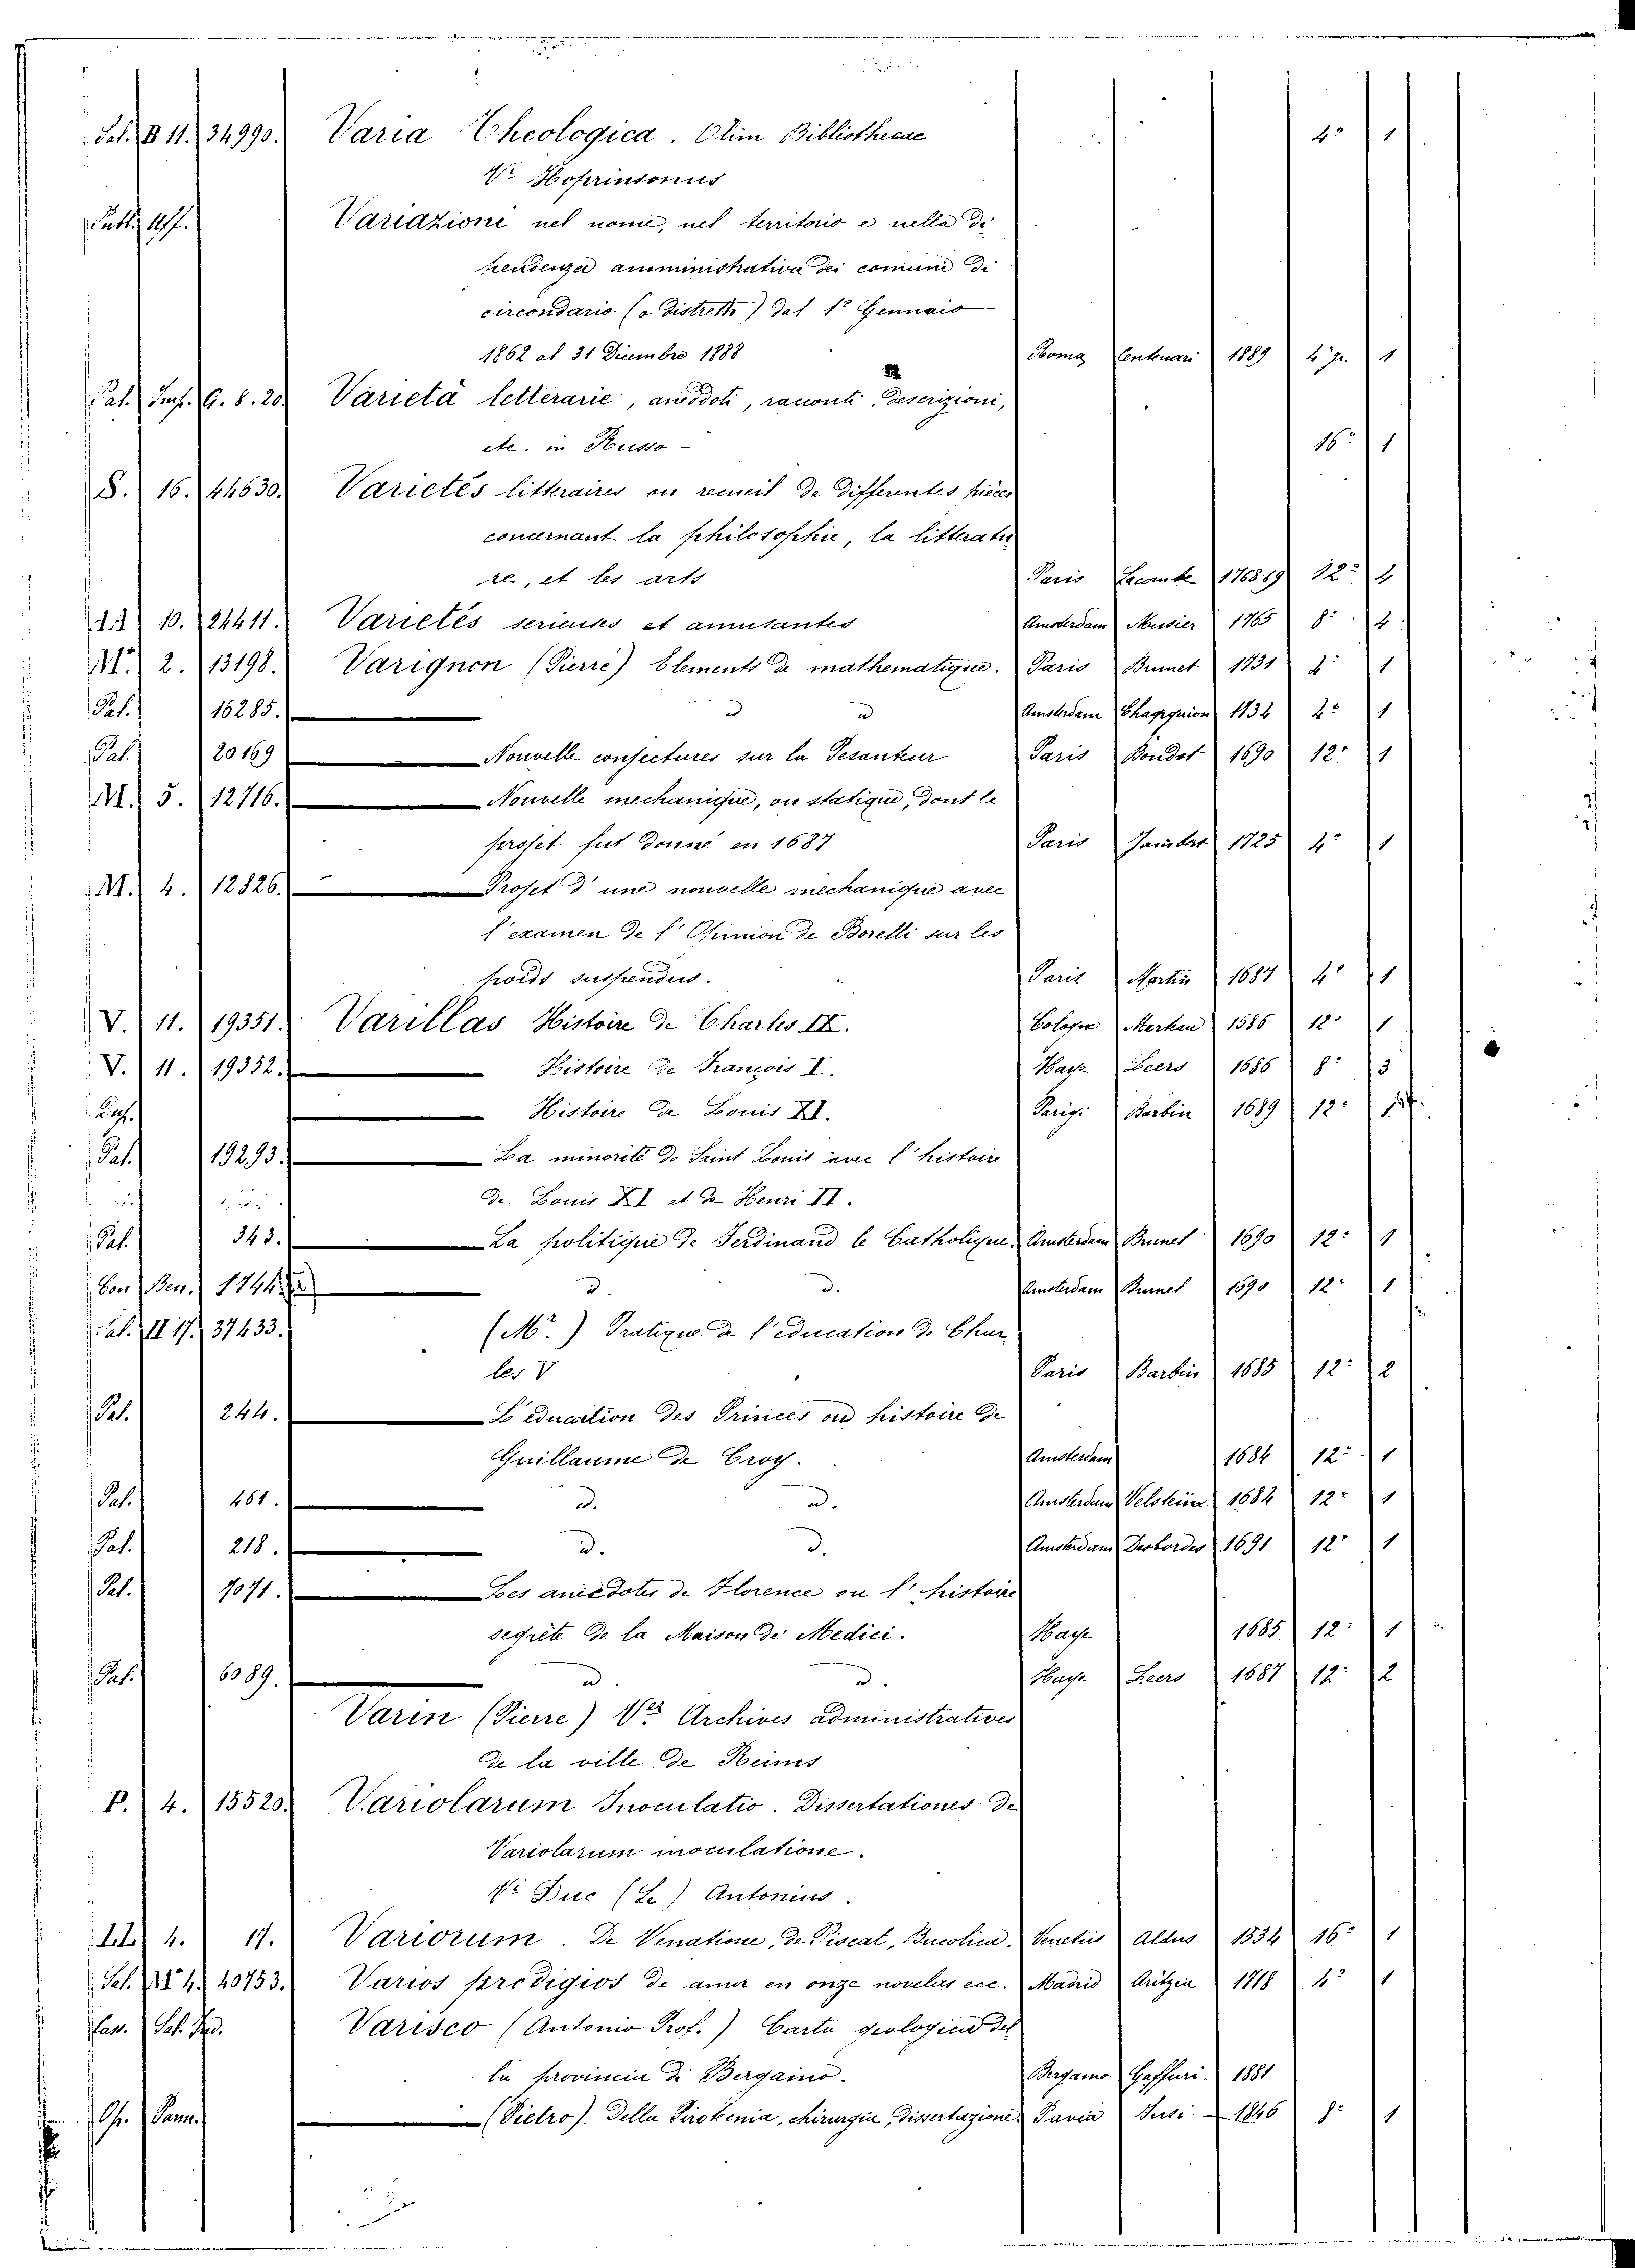 Sal. B 11. 34990. Varia Theologica. Olim Bibliothecae 4º 1
Vi Hoprinsonus
Variazioni nel nome, nel territorio e nella di
pendenza amministrativa dei comuni di
circondario (o distretto) dal 1º Gennaio
1862 al 31 Dicembre 1888 Roma Centenari 1889 4º gr. 1
G. 8. 20. Varietà letterarie, aneddoti, racconti, descrizioni,
etc. in Russo 16º 1
S. 16. 44630. Varietés litteraires ou recueil de differentes pièces
concernant la philosophie, la litteratu
re, et les arts Paris Lecombe 176869 12º 4
10. 24411. Varietés serieuses et amusantes Amsterdam Mussier 1765 8º 4
M. 2. 13198. Varignon (Pierre) Elements de mathematique. Paris Brunet 1731 4º 1
Pal. 16285. d d Amsterdam Changuion 1734 4º 1
Pal. 20169 Nouvelle conjectures sur la Pesanteur Paris Boudot 1690 12º 1
M. 5. 12716. Nouvelle mechanique, ou statique, dont le
projet fut donné en 1687 Paris Jombert 1725 4º 1
M. 4. 12826. Projet d'une nouvelle mechanique avec
l'examen de l'Opinion de Borelli sur les
poids suspendus. Paris Martin 1687 4º 1
V. 11. 19351. Varillas Histoire de Charles IX. Cologne Markau 1686 12º 1
V. 11. 19352. Histoire de François I. Haye Leers 1686 8º 3
Histoire de Louis XI. Parigi Barbin 1689 12º
Pal. 19293. La minorité de Saint Louis avec l'histoire
de Louis XI et de Henri II.
Pal. 343. La politique de Ferdinand le Catholique. Amsterdam Brunet 1690 12º 1
Con Ben. 1744 d. d. Amsterdam Brunel 1690 12º 1
Sal. II 17. 37433. (Mr.) Pratique de l'education de Char
les V Paris Barbin 1685 12º 2
Pal. 244. L'education des Princes ou histoire de
Guillaume de Croy. Amsterdam 1684 12º 1
Pal. 461. d. d. Amsterdam Velsteine 1684 12º 1
Pal. 218. d. d. Amsterdam Desbordes 1691 12º 1
Pal. 1071. Les anecdotes de Florence ou l'histoire
segrète de la Maison de Medici. Haye 1685 12º 1
Pal. 6089. d. d. Haye Leers 1687 12º 2
Varin (Pierre) Ves Archives administratives
de la ville de Reims
P. 4. 15520. Variolarum Inoculatio. Dissertationes de
Variolarum inoculatione.
Vi Duc (Le) Antonius.
4. 17. Variorum. De Venatione, de Piscat, Bucolica. Venetiis Aldus 1534 16º 1
Sal. 4. 40753. Varios prodigios de amor en onze novelas ecc. Madrid Aritzia 1718 4º 1
Cass. Sal. Varisco (Antonio Prof.) Carta geologica del
la provincia di Bergamo. Bergamo Gaffuri. 1881
(Pietro). Della Pirotenia, chirurgia, dissertazione. Pavia Fusi 1846 8º 1